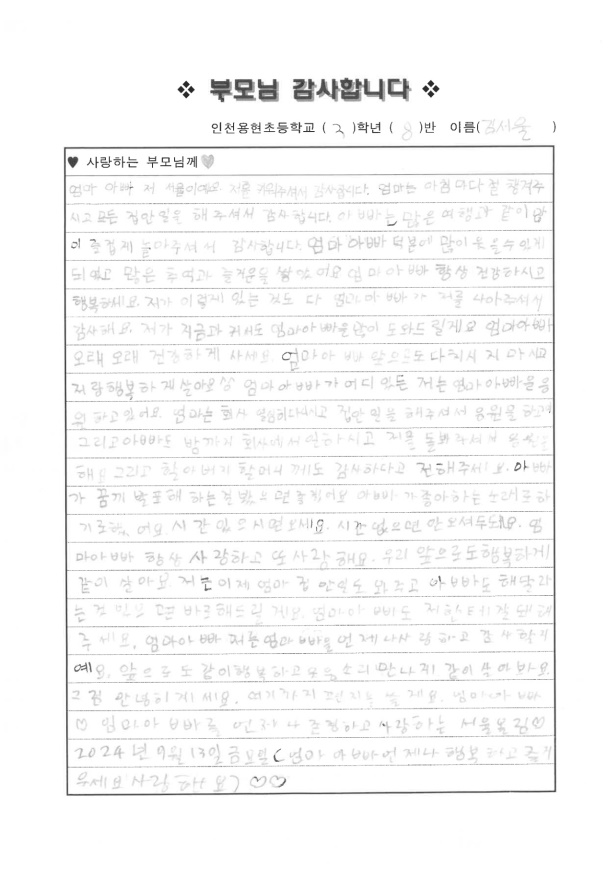 ❖ 부모님 감사합니다 ❖
인천용현초등학교 ( 2 )학년 ( 8 )반 이름(김서율 )
♥ 사랑하는 부모님께♥
엄마 아빠 저 서율이에요. 저를 키워주셔서 감사합니다. 엄마는 아침마다 잘 챙겨주
시고 모든 집안일을 해 주셔서 감사합니다. 아빠는 많은 여행과 같이 많
이 즐겁게 놀아주셔서 감사합니다. 엄마 아빠 덕분에 많이 웃을 수 있게
되었고 많은 추억과 즐거움을 쌓았어요 엄마 아빠 항상 건강하시고
행복하세요. 제가 이렇게 있는 것도 다 엄마아빠가 저를 나아주셔서
감사해요. 제가 지금과 커서도 엄마아빠을 많이 도와드릴게요 엄마아빠
오래 오래 건강하게 사세요. 엄마아빠 앞으로도 다치시지 마시고
저랑 행복하게 살아요 엄마아빠가 어디 있든 저는 엄마아빠을 응
원하고 있어요 엄마는 회사 하시고 집안일을 해주셔서 응원을 하고
그리고 아빠도 밤까지 회사에서 일하시고 저를 돌봐주셔서
해요 그리고 할아버지 할머니께도 감사하다고 전해주세요. 아빠
가 꿈끼 발표회 하는 좋겠어요 아빠가 좋아하는 노래로 하
기로 했어요. 시간 있으시면 오세요. 시간 없으면 안 오셔두되요. 엄
마아빠 항상 사랑하고 또 사랑해요. 우리 앞으로도 행복하게
같이 살아요. 저는 이제 엄마 집안일도 도와주고 아빠도 해달라
는 것 바르 해드릴게요. 엄마아빠도 저한테 잘 대해
주세요. 엄마아빠 저는 엄마아빠을 언제나 사랑하고 감사하기
예요. 앞으로도 같이 행복하고 웃음소리만 나게 같이 살아봐요.
그럼 안녕히계세요. 여기까지 편지를 쓸게요. 엄마아빠
♡ 엄마아빠를 언제나 존경하고 사랑하는 서율올림♡
2024년 9월 13일 금요일 (엄마 아빠 언제나 행복하고 즐거
우세요 사랑해요) ♡♡